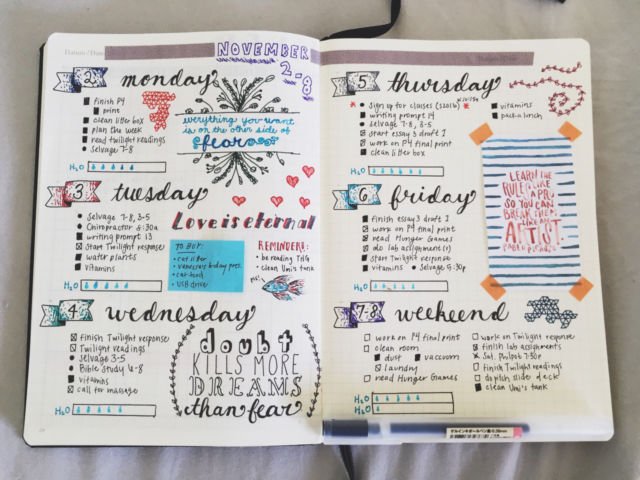 Datum / Date
NOVEMBER
2-8
2
monday
finish P4
print
clean litter box
plan the week
read twilight readings
Selvage 7-8
H2O
everything you want
is on the other side of
fear
3
tuesday
Selvage 7-8, 3-5
Chiropractor 5:30a
writing prompt 13
Start Twilight response
water plants
vitamins
H2O
Love is eternal
TO BUY:
cat litter
vanessa's bday pres.
cat food
USB drive
REMINDERS:
be reading THG
clean Umi's tank
4
wednesday
finish Twilight response
Twilight readings
Selvage 3-5
Bible Study 6-8
vitamins
call for massage
H2O
doubt
KILLS MORE
DREAMS
than fear
5
thursday
sign up for classes
writing prompt 14
Selvage 7-8, 3-5
start essay 3 draft 1
work on P4 final print
clean litter box
vitamins
pack a lunch
H2O
LEARN THE
RULES LIKE
A PRO
SO YOU CAN
BREAK THEM
LIKE AN
ARTIST.
PABLO PICASSO
6
friday
finish essay 3 draft 1
work on P4 final print
read Hunger Games
do lab assignment(s)
start Twilight response
vitamins
Selvage 5:30p
H2O
7-8
weekend
work on P4 final print
clean room
dust
vacuum
laundry
read Hunger Games
work on Twilight response
finish lab assignments
Sat. Philpot 7:30p
finish Twilight readings
do pitch slide deck
clean Umi's tank
H2O
ゲルインキボールペン
0.38mm